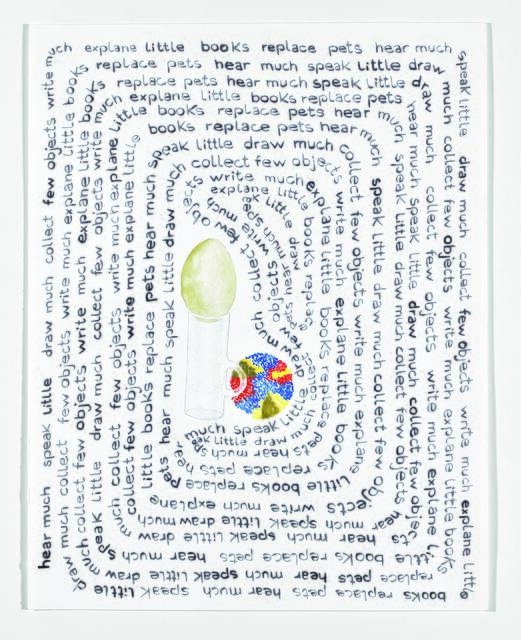 hear much speak little draw much collect few objects write much
explane little books replace pets hear much
speak little draw much collect few objects write much explane little
books replace pets hear much speak little
draw much collect few objects write much explane little books
replace pets hear much speak little draw
much collect few objects write much explane little books
replace pets hear much speak little draw
much collect few objects write much explane little books
replace pets hear much speak little draw
much collect few objects write much explane
little books replace pets hear much
speak little draw much collect few objects write much
explane little books replace pets
hear much speak little draw much collect few objects
hear much speak little draw much
collect few objects write much explane little
books replace pets hear much
speak little draw much collect few objects
write much explane
little books replace pets hear much
speak little draw much
collect few objects
write much explane little books
replace pets
hear much speak little draw much
collect few objects
write much
explane little
books replace
pets hear much
speak little draw much